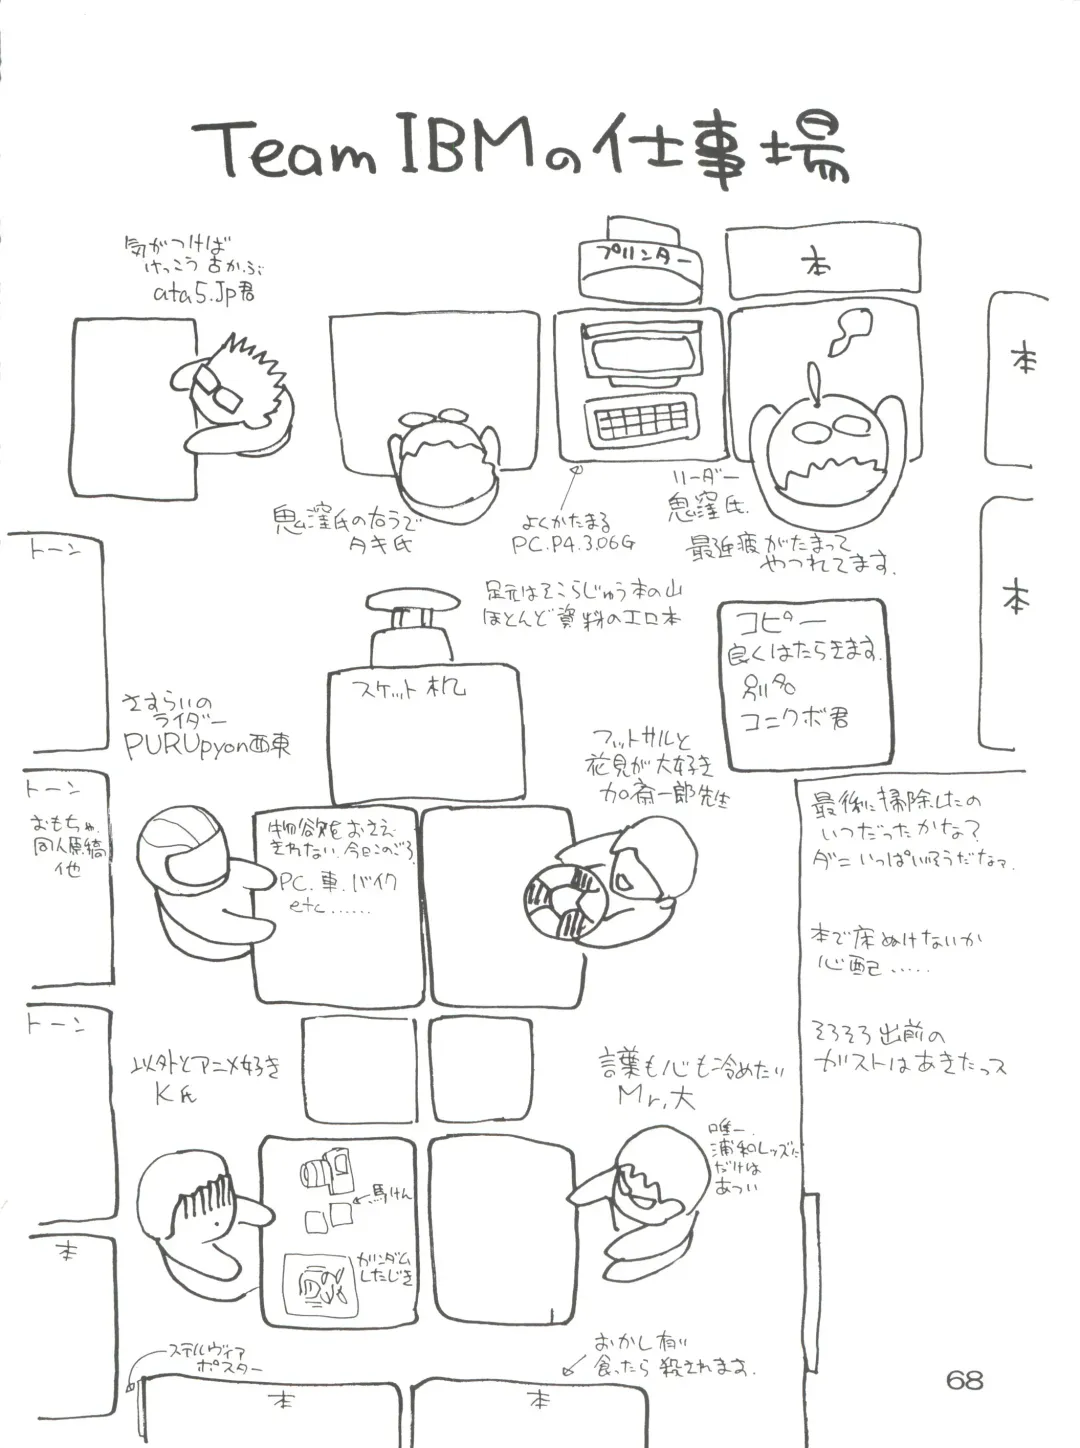 Team IBMの仕事場
気がつけば
けっこう古かぶ
ata5.Jp君
プリンター
本
本
鬼窪氏の右うで
タキ氏
よくかたまる
PC.P4.3.06G
リーダー
鬼窪氏.
最近疲がたまって
やつれてます.
トーン
足元はそこらじゅう本の山
ほとんど資料のエロ本
本
コピー
良くはたらきます.
別名
コニクボ君
スケット机
さすらいの
ライダー
PURUpyon西東
フットサルと
花見が大好き
加斎一郎先生
トーン
おもちゃ.
同人原稿
他
物欲をおさえ
きれない.今日このごろ
PC.車.バイク
etc......
最後に掃除したの
いつだったかな?
ダニいっぱいいそうだなァ.
本で床ぬけないか
心配.....
そろそろ出前の
ガストはあきたっス
トーン
以外とアニメ好き
K氏
言葉も心も冷めたい
Mr.大
唯一.
浦和レッズに
だけは
あつい
馬けん
ガンダム
したじき
本
ステルヴィア
ポスター
おかし有り
食ったら殺されます.
本
本
68